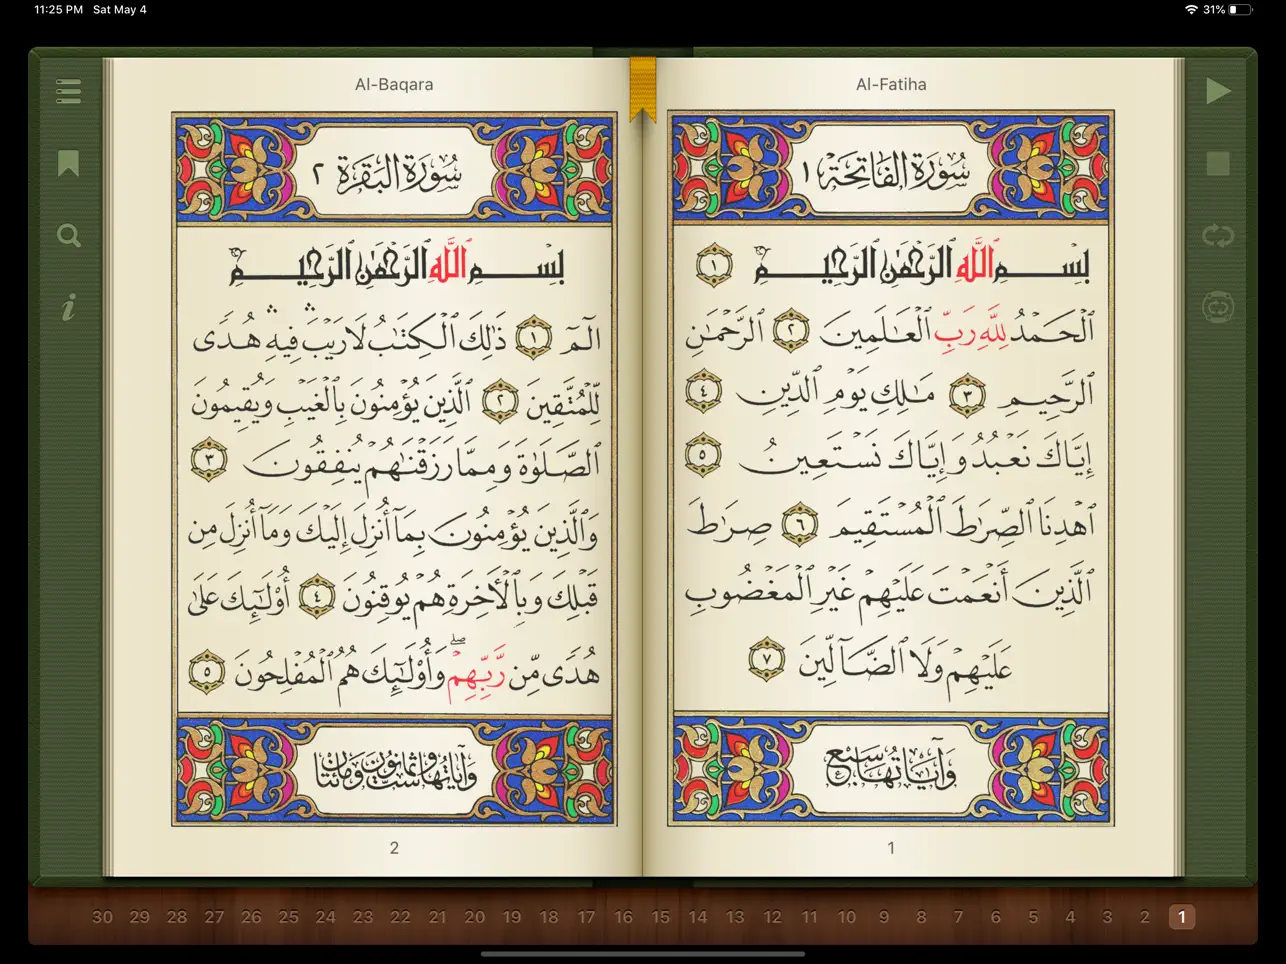 11:25 PM Sat May 4
31%
Al-Fatiha
سُورَةُ الفَاتِحَة ١
بِسْمِ ٱللَّهِ ٱلرَّحْمَٰنِ ٱلرَّحِيمِ ١
ٱلْحَمْدُ لِلَّهِ رَبِّ ٱلْعَٰلَمِينَ ٢ ٱلرَّحْمَٰنِ
ٱلرَّحِيمِ ٣ مَٰلِكِ يَوْمِ ٱلدِّينِ ٤
إِيَّاكَ نَعْبُدُ وَإِيَّاكَ نَسْتَعِينُ ٥
ٱهْدِنَا ٱلصِّرَٰطَ ٱلْمُسْتَقِيمَ ٦ صِرَٰطَ
ٱلَّذِينَ أَنْعَمْتَ عَلَيْهِمْ غَيْرِ ٱلْمَغْضُوبِ
عَلَيْهِمْ وَلَا ٱلضَّآلِّينَ ٧
وَآيَاتُهَا سَبْعٌ
1
Al-Baqara
سُورَةُ البَقَرَة ٢
بِسْمِ ٱللَّهِ ٱلرَّحْمَٰنِ ٱلرَّحِيمِ
الٓمٓ ١ ذَٰلِكَ ٱلْكِتَٰبُ لَا رَيْبَ ۛ فِيهِ ۛ هُدًى
لِّلْمُتَّقِينَ ٢ ٱلَّذِينَ يُؤْمِنُونَ بِٱلْغَيْبِ وَيُقِيمُونَ
ٱلصَّلَوٰةَ وَمِمَّا رَزَقْنَٰهُمْ يُنفِقُونَ ٣
وَٱلَّذِينَ يُؤْمِنُونَ بِمَآ أُنزِلَ إِلَيْكَ وَمَآ أُنزِلَ مِن
قَبْلِكَ وَبِٱلْءَاخِرَةِ هُمْ يُوقِنُونَ ٤ أُو۟لَٰٓئِكَ عَلَىٰ
هُدًى مِّن رَّبِّهِمْ ۖ وَأُو۟لَٰٓئِكَ هُمُ ٱلْمُفْلِحُونَ ٥
وَآيَاتُهَا سِتٌّ وَثَمَانُونَ وَمِائَتَانِ
2
30 29 28 27 26 25 24 23 22 21 20 19 18 17 16 15 14 13 12 11 10 9 8 7 6 5 4 3 2 1